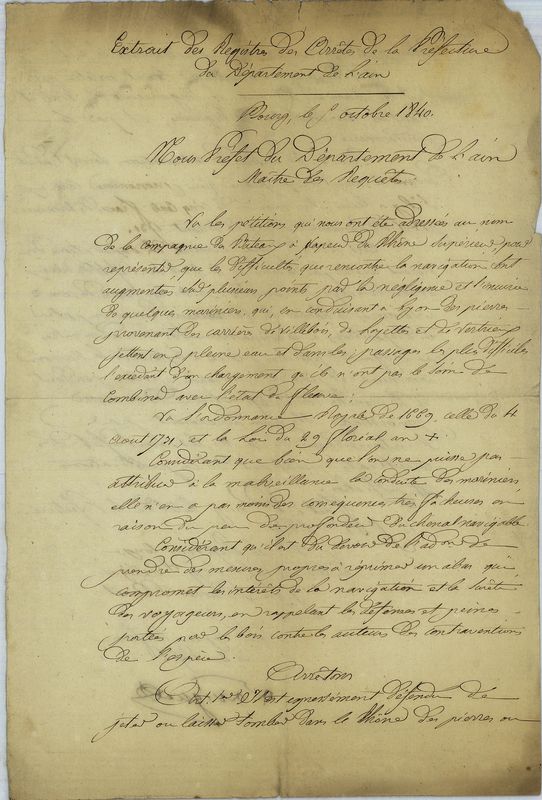 Extrait des Registres des Arrêtés de la Préfecture
du Département de l'ain
Bourg, le octobre 1840.
Nous Préfet du Département de l'ain
Maître des Requêtes
Vu les petitions qui nous ont été adressées au nom
de la compagnie des Bateaux à vapeur du Rhône supérieur, pour
représenter que les difficultés que rencontre la navigation sont
augmentées sur plusieurs points par la négligence et l'incurie
de quelques mariniers, qui, en conduisant à Lyon des pierres
provenant des carrières de villebois, de Lhuis et de
jettent en pleine eau et dans les passages les plus difficiles
l'excédant d'un chargement qu'ils n'ont pas le soin de
combiner avec l'état du fleuve;
Vu l'ordonnance Royale de 1669, celle du 4
aout 1731, et la Loi du 29 floréal an X.
Considérant que bien que l'on ne puisse pas
attribuer à la malveillance la conduite des mariniers
elle n'en a pas moins des conséquences très fâcheuses en
raison du peu de profondeur du chenal navigable.
Considérant qu'il est du devoir de l'adon de
prendre des mesures propres à réprimer un abus qui
compromet les intérêts de la navigation et la sureté
des voyageurs, en rappelant les défenses et peines
portées par les lois contre les auteurs des contraventions
de l'espèce.
Arrêtons
Art. 1er Il est expressément défendu de
jeter ou laisser tomber dans le Rhône des pierres ou